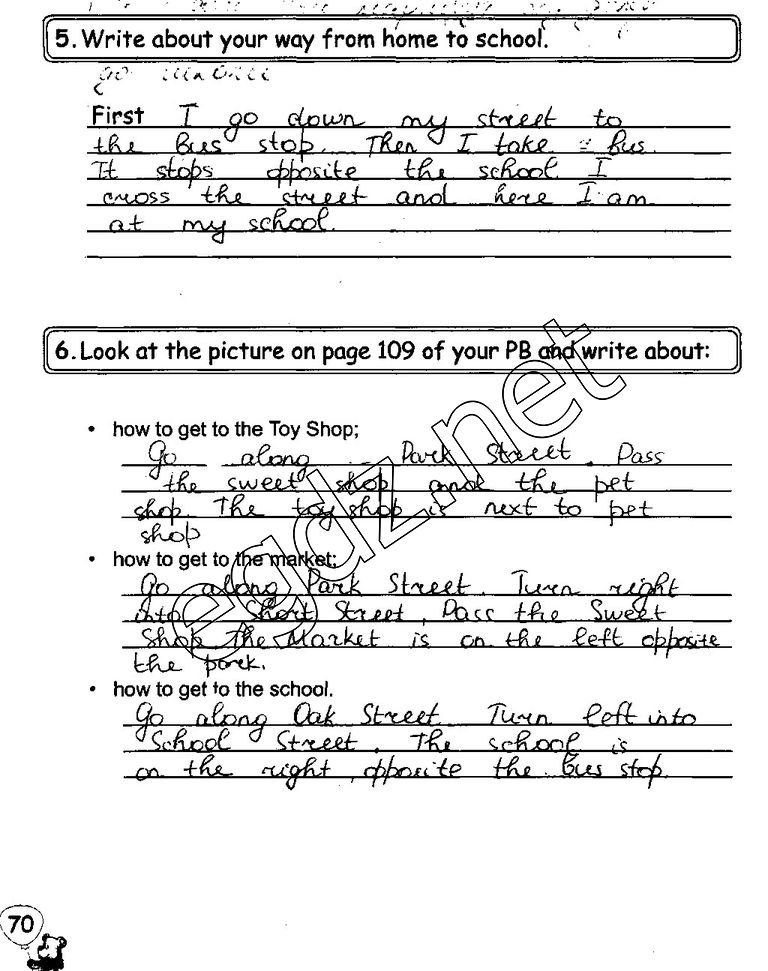 5. Write about your way from home to school.
go
First I go down my street to
the Bus stop. Then I take a bus.
It stops opposite the school I
cross the street and here I am
at my school.
6. Look at the picture on page 109 of your PB and write about:
• how to get to the Toy Shop;
Go along Park Street. Pass
the sweet shop and the pet
shop. The toy shop is next to pet
shop
• how to get to the market;
Go along Park Street. Turn right
into Short Street. Pass the Sweet
Shop The Market is on the left opposite
the park.
• how to get to the school.
Go along Oak Street. Turn left into
School Street. The school is
on the right, opposite the bus stop.
egdz.net
70